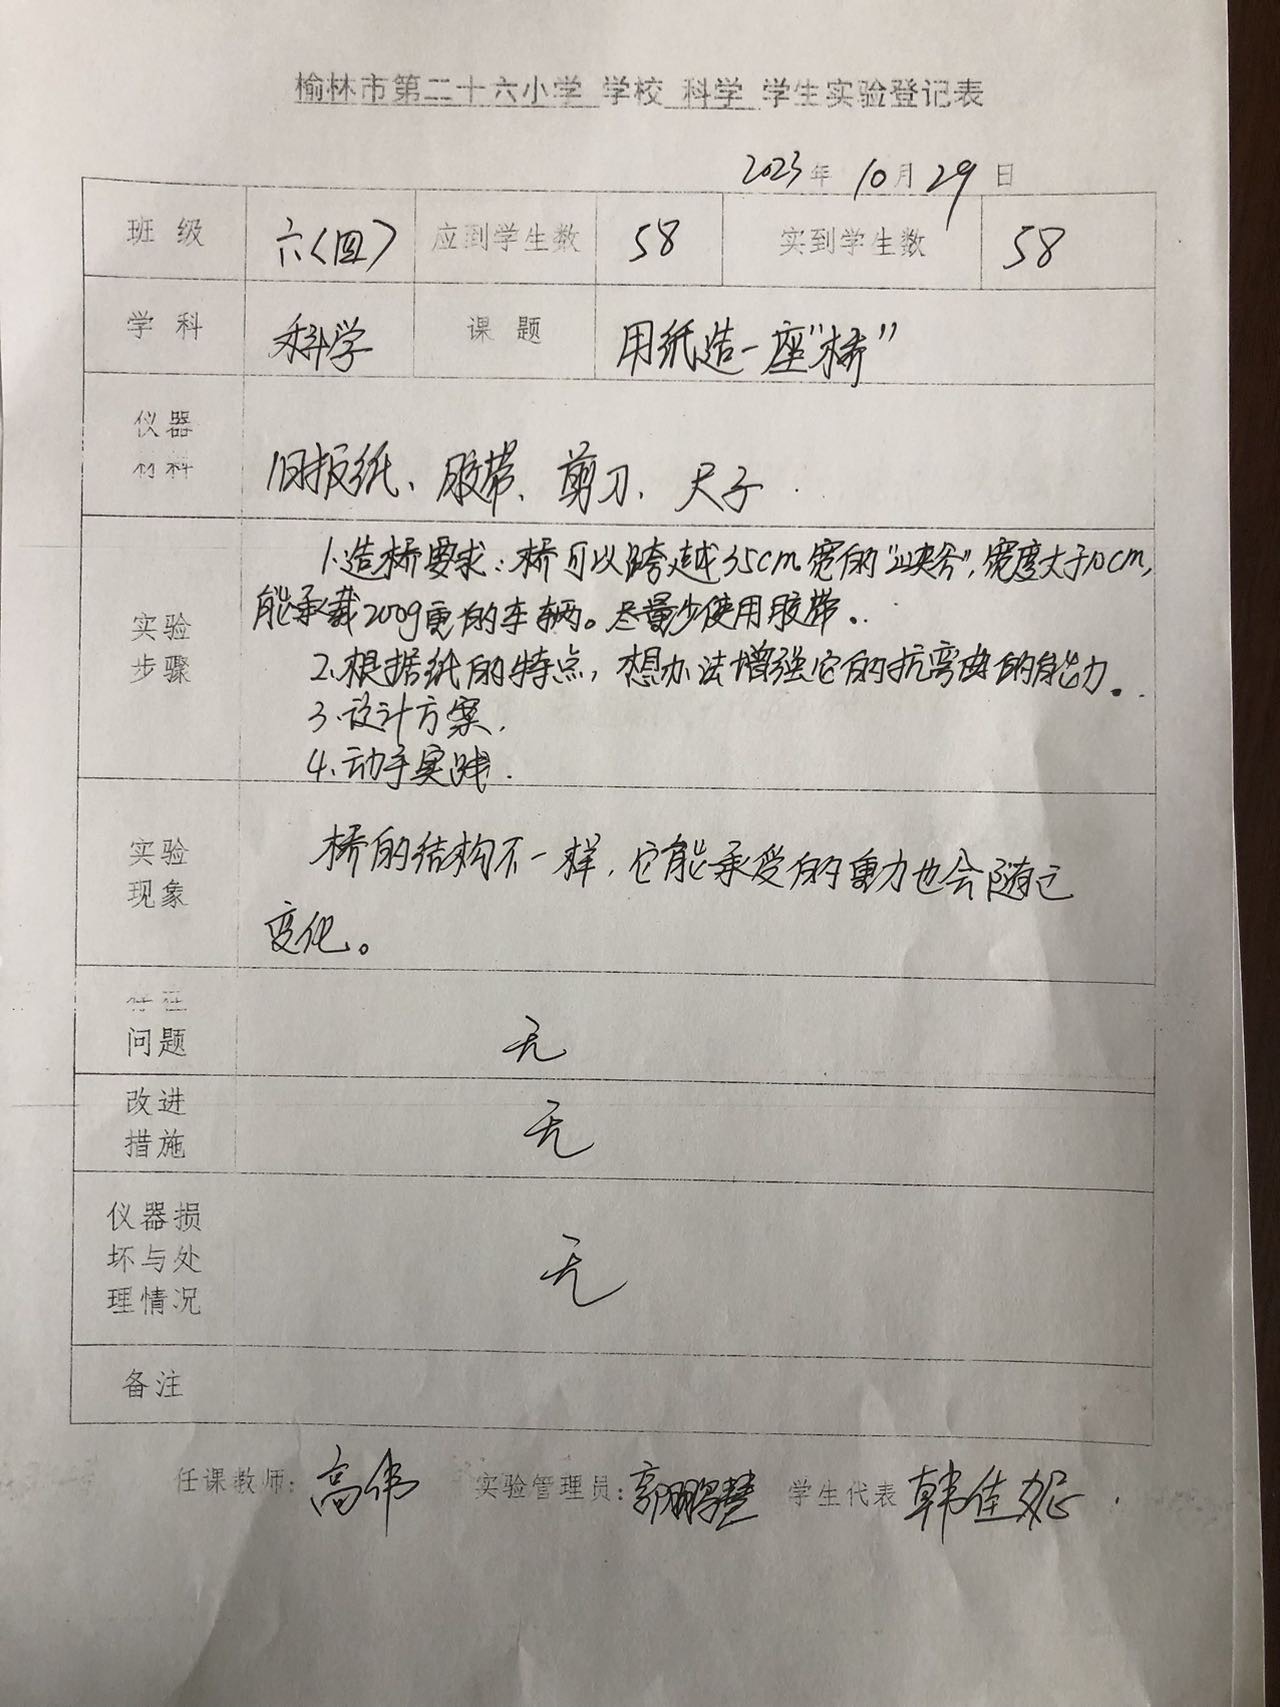 榆林市第二十六小学 学校 科学 学生实验登记表
2023年 10月29日
班 级 六(四) 应到学生数 58 实到学生数 58
学 科 科学 课 题 用纸造一座"桥"
仪器
材料
旧报纸、胶带、剪刀、尺子
实验
步骤
1.造桥要求:桥可以跨越35cm宽的"峡谷",宽度大于10cm,
能承载200g重的车辆。尽量少使用胶带.
2.根据纸的特点,想办法增强它的抗弯曲的能力.
3.设计方案.
4.动手实践.
实验
现象
桥的结构不一样,它能承受的重力也会随之
变化。
存在
问题
无
改进
措施
无
仪器损
坏与处
理情况
无
备注
任课教师:高伟 实验管理员:郭鹏慧 学生代表 韩佳妮